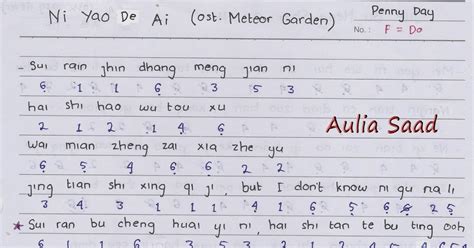 Ni Yao De Ai (ost. Meteor Garden)
Penny Day
No.: F = Do
Sui rain jhin dhang meng jian ni
6 1 1 6 3 5 3
hai shi hao wu tou xu
2 1 2 1 4 6
Aulia Saad
wai mian zheng zai xia zhe yu
6 5 4 6 6 2 2
jing tian shi xing qi ji, but I don't know ni qu na li
3 4 3 1 1 1 1 4 1 1 6 5 6 6 2 5
* Sui ran bu cheng huai yi ni, hai shi tan te bu ting ooh